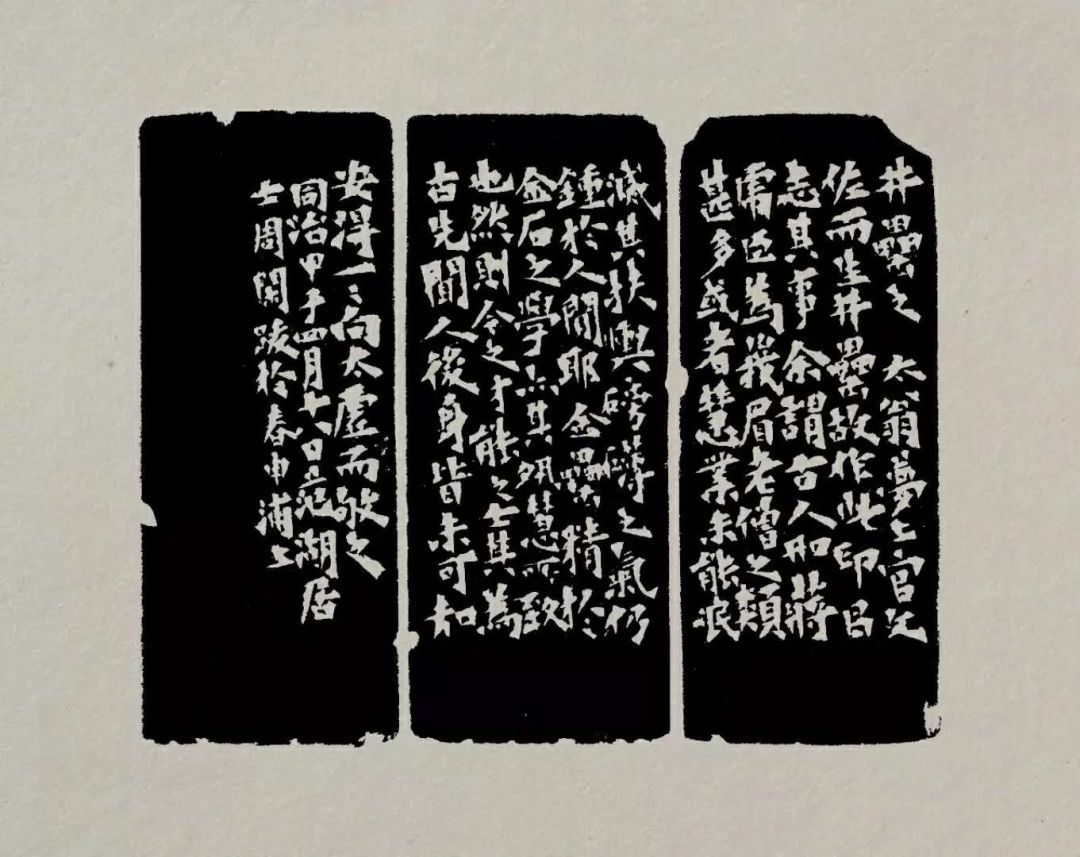 井罍之　太翁夢上官
佐而生井罍故作此印㠯
志其事余謂古人如蔣
虎臣為峩眉老僧之類
甚多或者慧業未能泯
滅其扶輿磅礴之氣仍
鍾於人間耶金罍精於
金石之學亦其夙慧所致
也然則今之才能之士其為
古先聞人後身皆未可知
安得一々向太虛而敬之
同治甲子四月十六日范湖居
士周閑跋於春申浦上